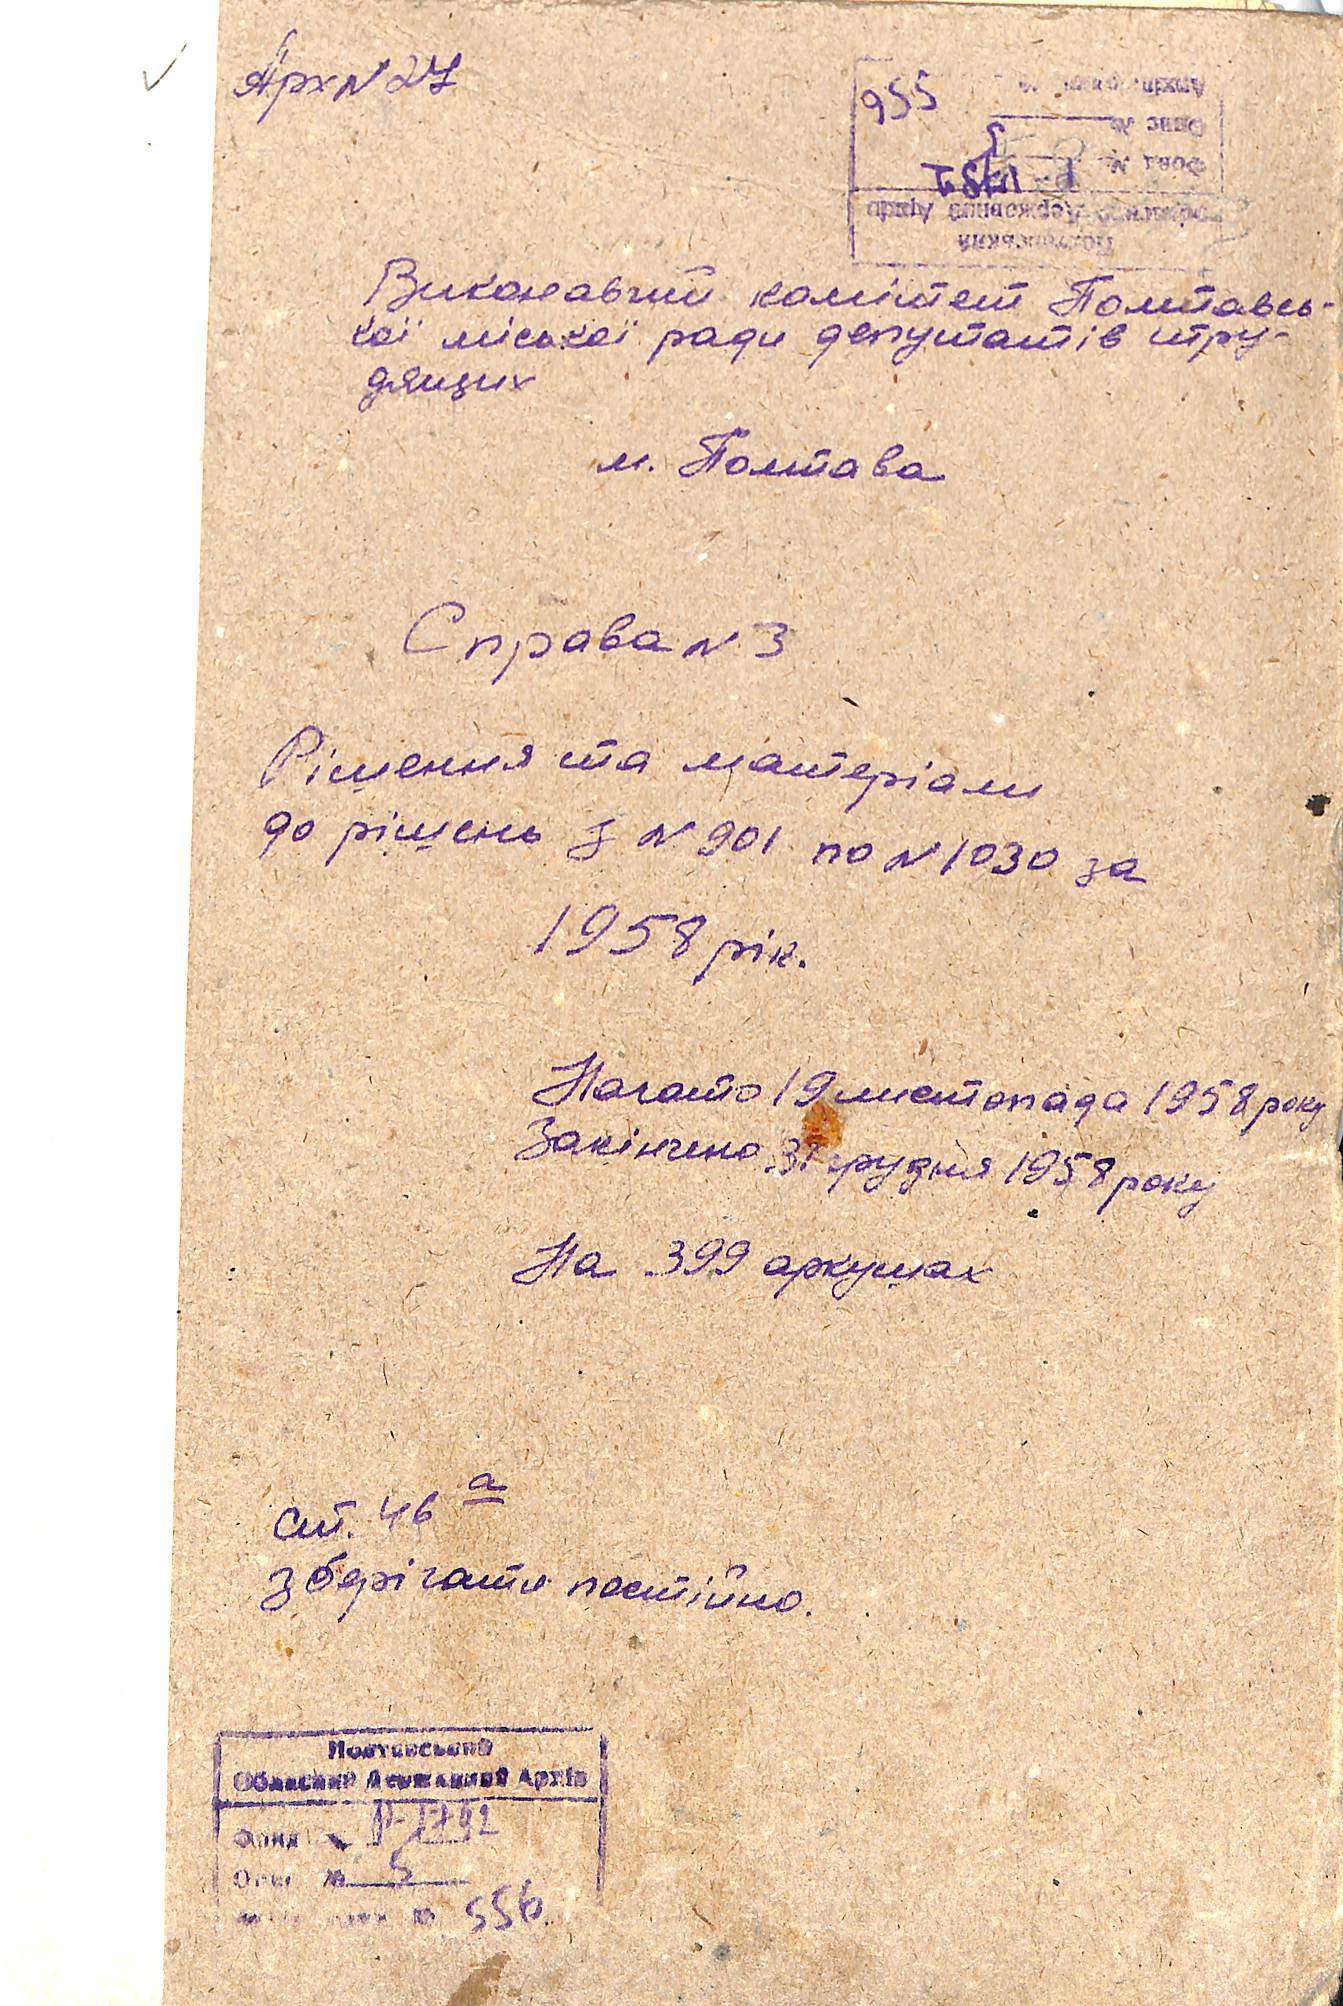 Арх N 27
Полтавський
Обласний Державний Архів
Фонд №
Опис № 5
556
Виконавчий комітет Полтавсь-
кої міської ради депутатів тру-
дящих
м. Полтава
Справа N 3
Рішення та матеріали
до рішень з N 901 по N 1030 за
1958 рік.
Начато 19 листопада 1958 року
Закінчено 31 грудня 1958 року
На 399 аркушах
Ст. 46 а
зберігати постійно.
Полтавський
Обласний Державний Архів
Фонд № Р-1792
Опис № 5
556